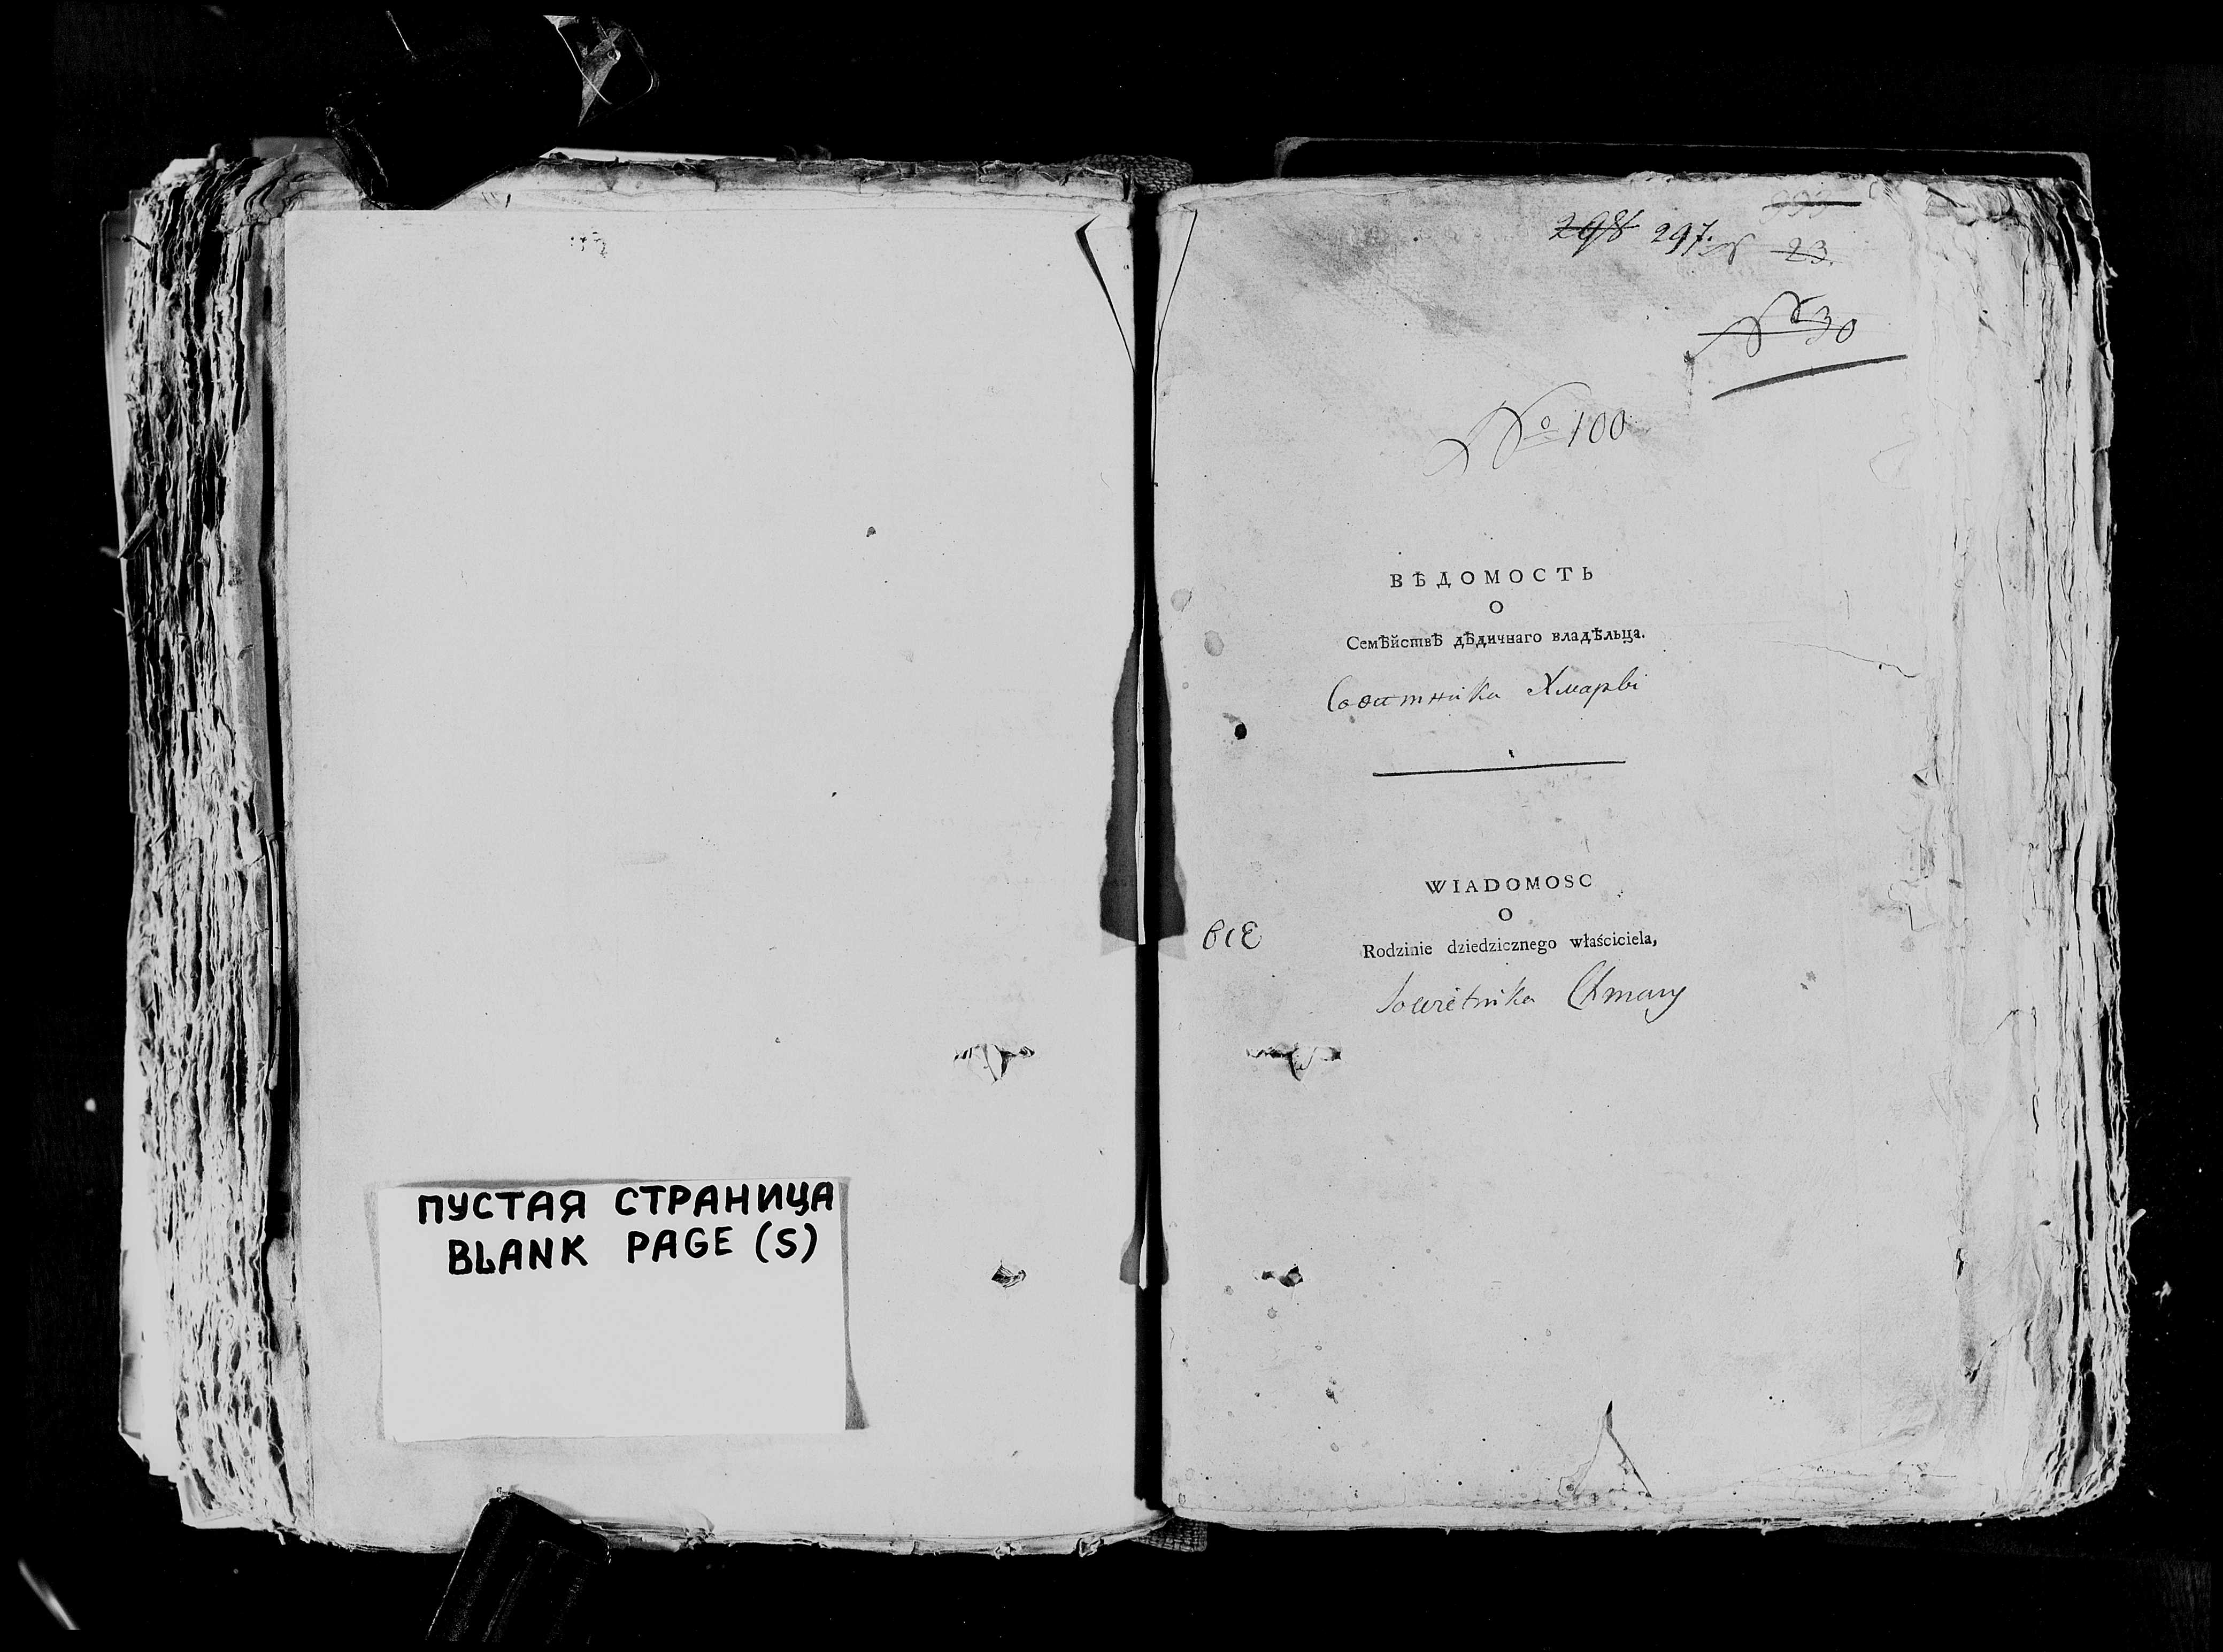 ПУСТАЯ СТРАНИЦА
BLANK PAGE (S)
298 297. № 23.
№ 30
№ 100
ВѢДОМОСТЬ
О
Семѣйствѣ дѣдичнаго владѣльца.
Советника Хмары
WIADOMOSC
O
Rodzinie dziedzicznego właściciela,
Sowietnika Chmary